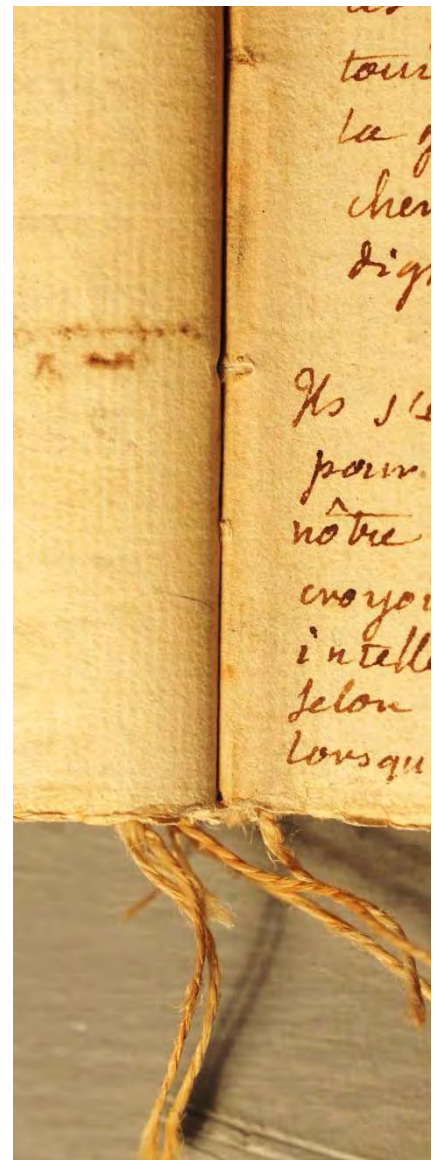 tour
la
cher
dign
Ils s'e
pour
nôtre
croyoi
intelle
selon
lorsqu